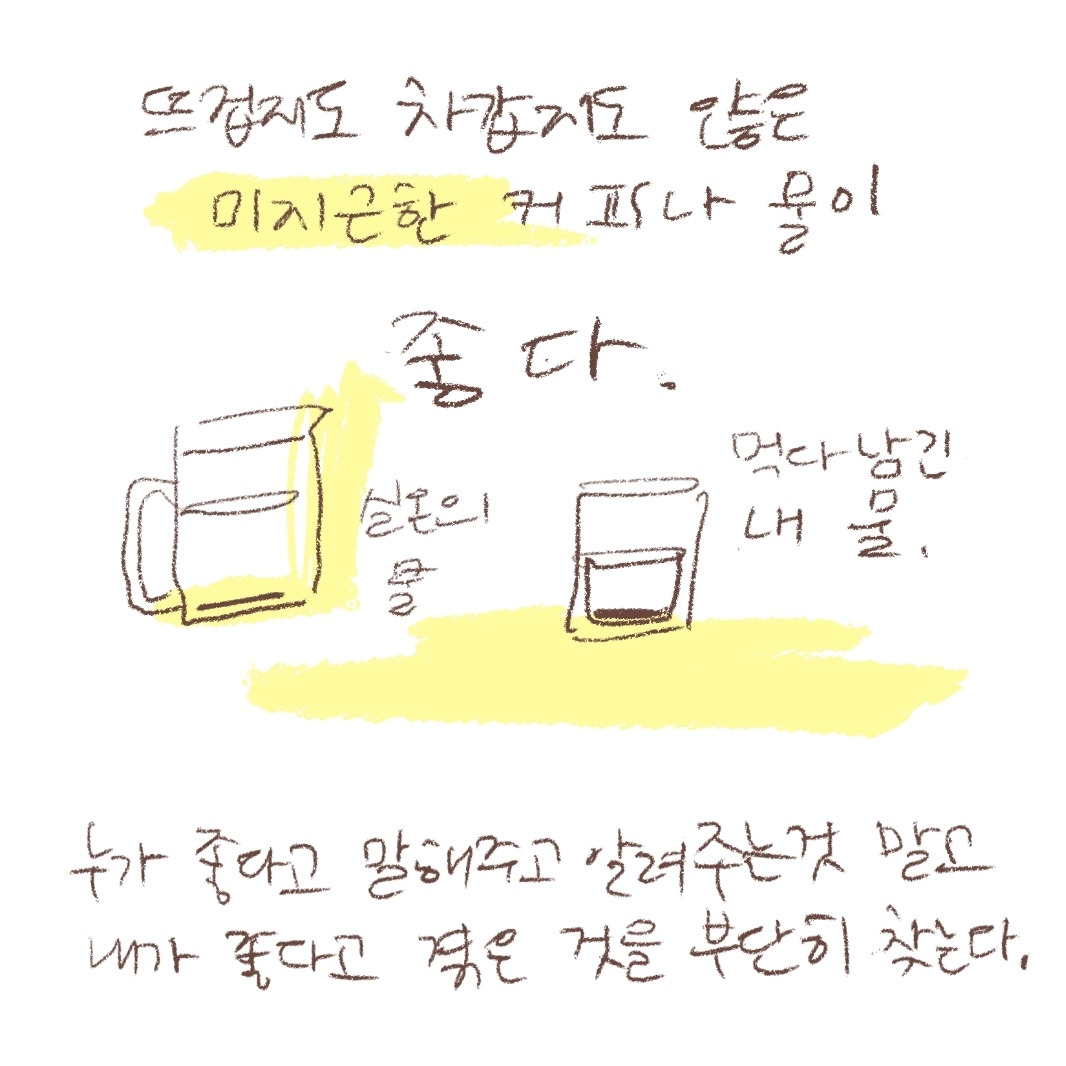 뜨겁지도 차갑지도 않은
미지근한 커피나 물이
좋다.
실온의
물
먹다남긴
내 물.
누가 좋다고 말해주고 알려주는것 말고
내가 좋다고 겪은 것을 부단히 찾는다.